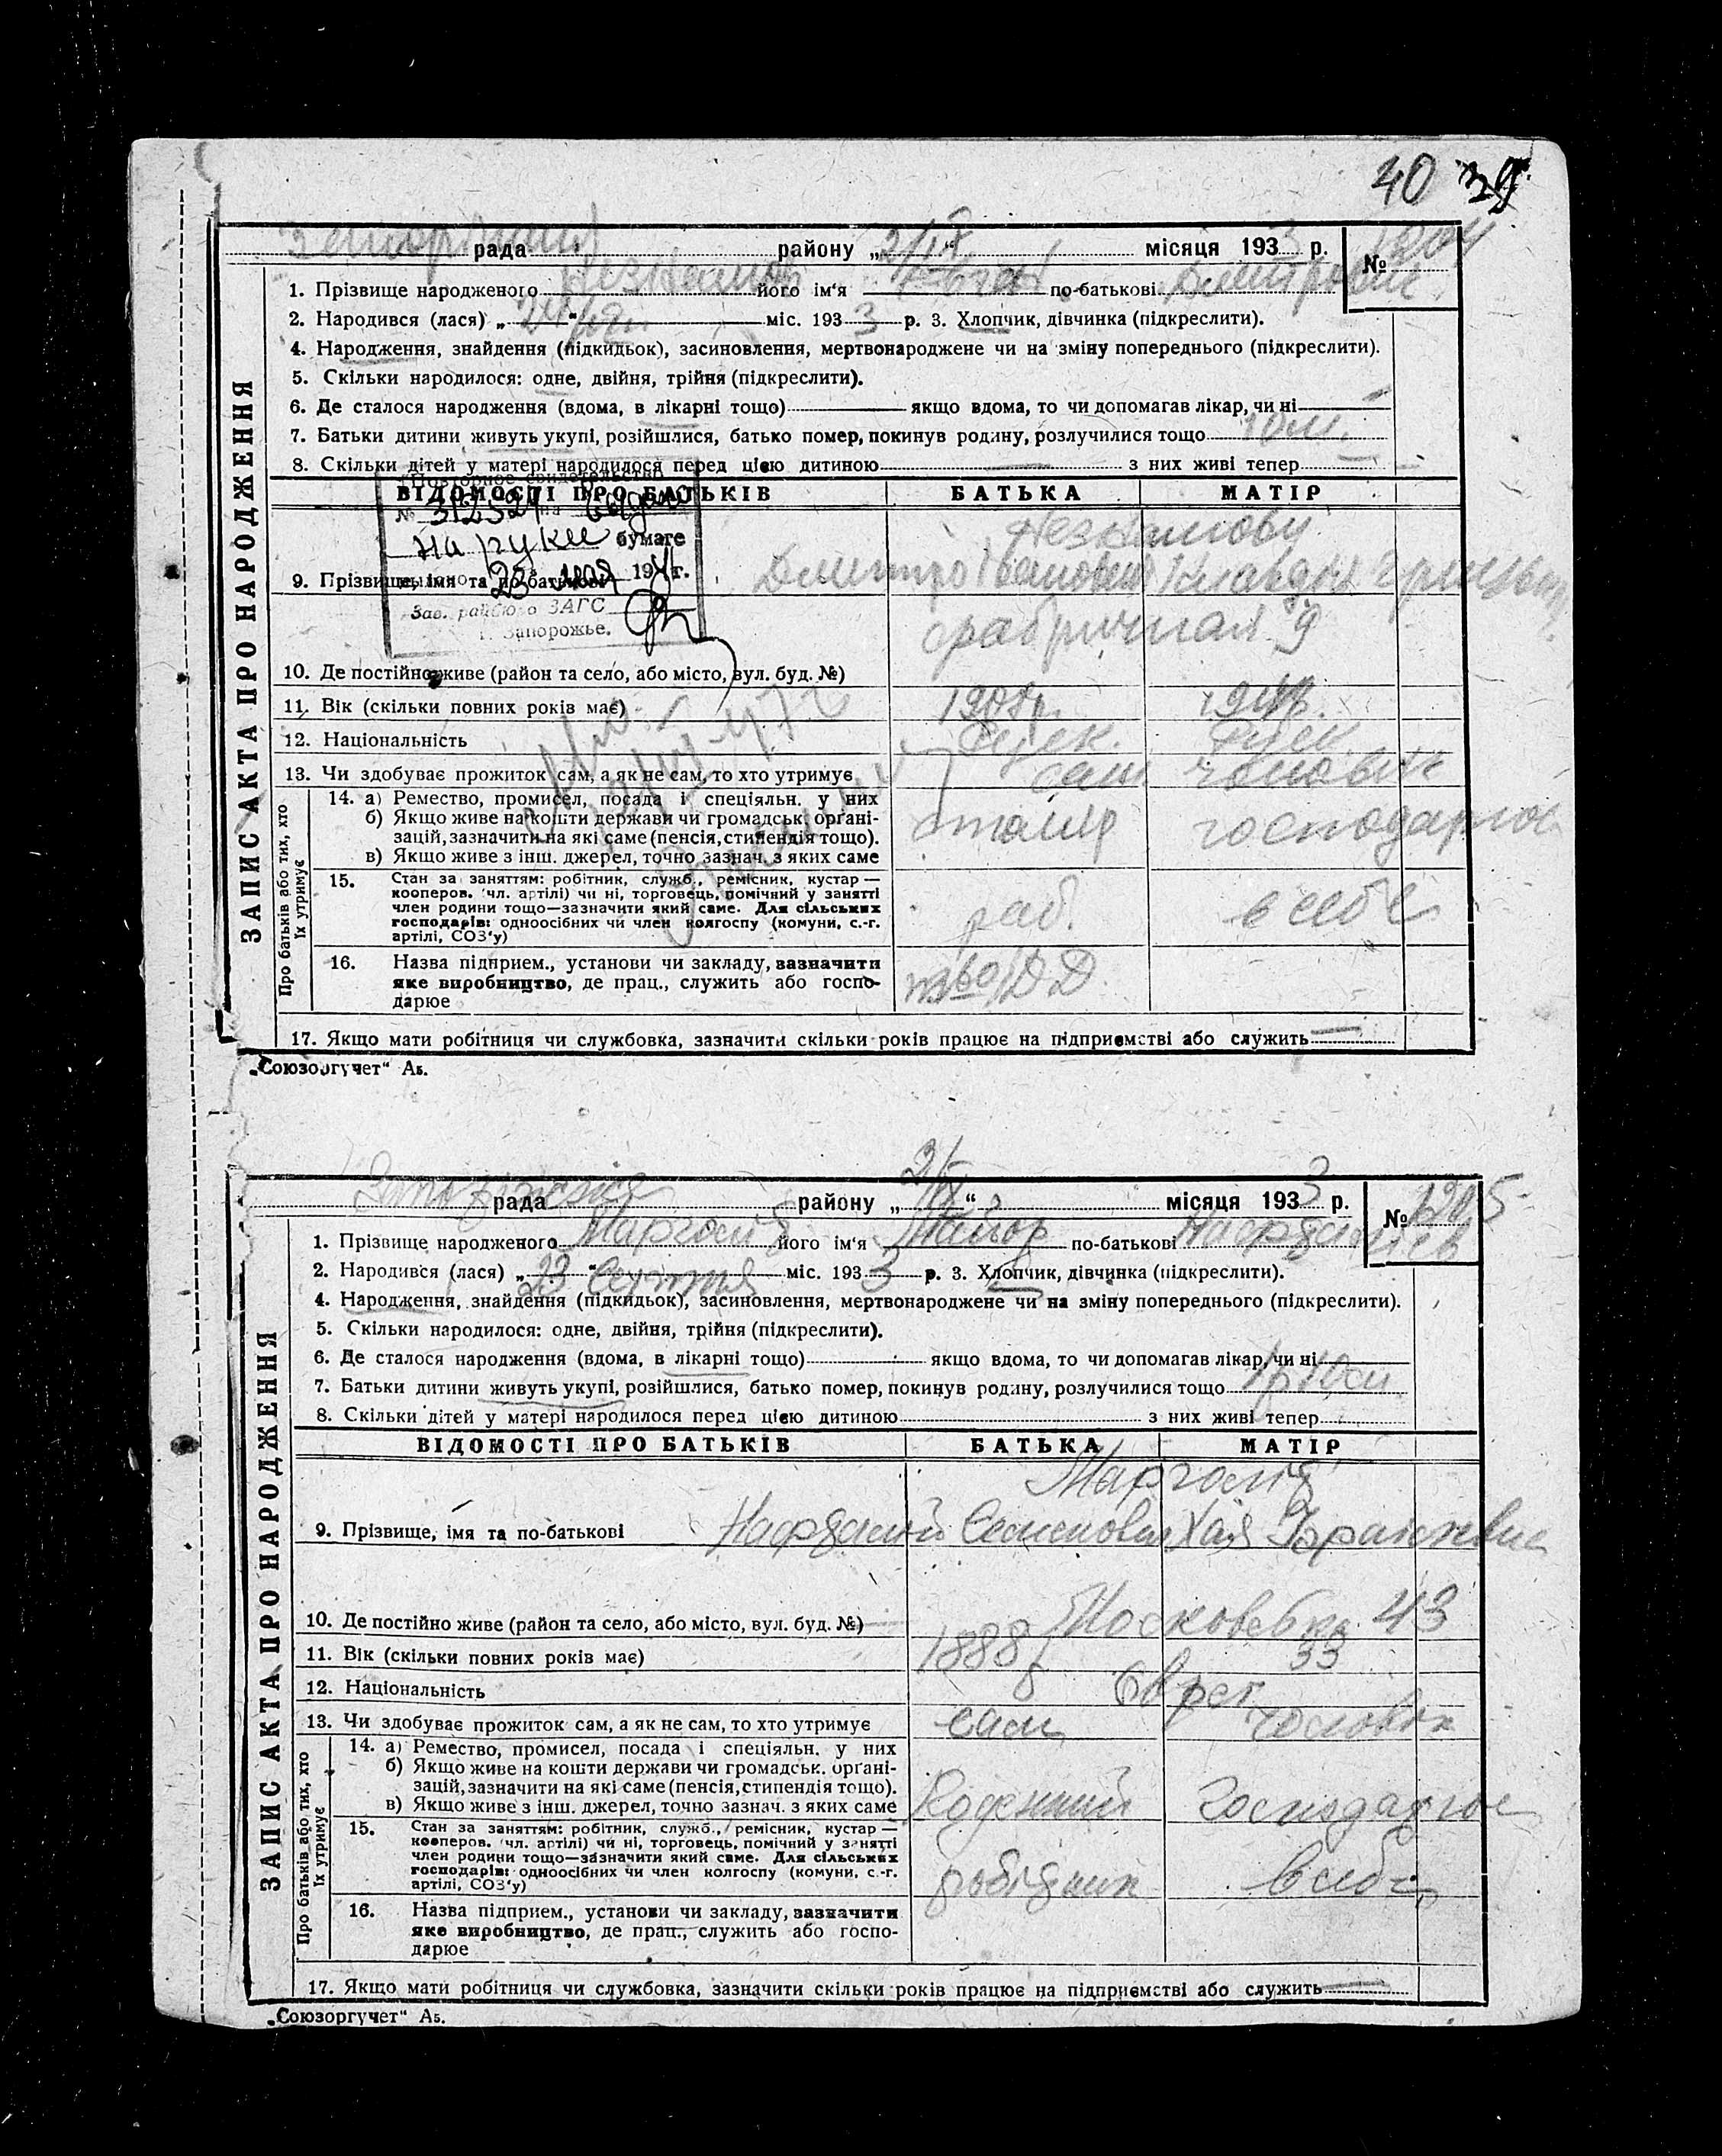 40 39
рада району „2/IX“ місяця 1933 р. № 1204
1. Прізвище народженого його ім'я по-батькові Дмитрович
2. Народився (лася) „24“ міс. 1933 р. 3. Хлопчик, дівчинка (підкреслити).
4. Народження, знайдення (підкидьок), засиновлення, мертвонароджене чи на зміну попереднього (підкреслити).
5. Скільки народилося: одне, двійня, трійня (підкреслити).
6. Де сталося народження (вдома, в лікарні тощо) якщо вдома, то чи допомагав лікар, чи ні
7. Батьки дитини живуть укупі, розійшлися, батько помер, покинув родину, розлучилися тощо 10 м.
8. Скільки дітей у матері народилося перед цією дитиною з них живі тепер
Повторное свидетельство
ВІДОМОСТІ ПРО БАТЬКІВ БАТЬКА МАТІР
№
на руки бумаге
Незнамови
9. Прізвище, імя та по-батькові Дмитро Клавдія
23 мая 194 г.
Зав. райбюро ЗАГС
г. Запорожье.
фабрична 9
10. Де постійно живе (район та село, або місто, вул. буд. №)
11. Вік (скільки повних років має)
12. Національність руск. руск.
13. Чи здобуває прожиток сам, а як не сам, то хто утримує сам чоловік
14. а) Ремество, промисел, посада і спеціяльн. у них
б) Якщо живе на кошти держави чи громадськ. органі-
зацій, зазначити на які саме (пенсія, стипендія тощо). столяр господарює
в) Якщо живе з інш. джерел, точно зазнач. з яких саме
15. Стан за заняттям: робітник, служб., ремісник, кустар —
кооперов. (чл. артілі) чи ні, торговець, помічний у занятті
член родини тощо—зазначити який саме. Для сільських
господарів: одноосібних чи член колгоспу (комуни, с.-г.
артілі, СОЗ'у) раб. в себе
16. Назва підприєм., установи чи закладу, зазначити
яке виробництво, де прац., служить або госпо-
дарює
17. Якщо мати робітниця чи службовка, зазначити скільки років працює на підприємстві або служить
ЗАПИС АКТА ПРО НАРОДЖЕННЯ
Про батьків або тих, хто
їх утримує
„Союзоргучет“ А5.
рада району „2/IX“ місяця 1933 р. № 1205
1. Прізвище народженого Марголід його ім'я Майор по-батькові
2. Народився (лася) „23 Серпня“ міс. 1933 р. 3. Хлопчик, дівчинка (підкреслити).
4. Народження, знайдення (підкидьок), засиновлення, мертвонароджене чи на зміну попереднього (підкреслити).
5. Скільки народилося: одне, двійня, трійня (підкреслити).
6. Де сталося народження (вдома, в лікарні тощо) якщо вдома, то чи допомагав лікар, чи ні
7. Батьки дитини живуть укупі, розійшлися, батько помер, покинув родину, розлучилися тощо 1р 10м
8. Скільки дітей у матері народилося перед цією дитиною з них живі тепер
ВІДОМОСТІ ПРО БАТЬКІВ БАТЬКА МАТІР
Марголід
9. Прізвище, імя та по-батькові Хая
10. Де постійно живе (район та село, або місто, вул. буд. №) Московська 43
11. Вік (скільки повних років має) 1888 33
12. Національність Єврєї
13. Чи здобуває прожиток сам, а як не сам, то хто утримує сам чоловік
14. а) Ремество, промисел, посада і спеціяльн. у них
б) Якщо живе на кошти держави чи громадськ. органі-
зацій, зазначити на які саме (пенсія, стипендія тощо).
в) Якщо живе з інш. джерел, точно зазнач. з яких саме господарює
15. Стан за заняттям: робітник, служб., ремісник, кустар —
кооперов. (чл. артілі) чи ні, торговець, помічний у занятті
член родини тощо—зазначити який саме. Для сільських
господарів: одноосібних чи член колгоспу (комуни, с.-г.
артілі, СОЗ'у) робідник в себе
16. Назва підприєм., установи чи закладу, зазначити
яке виробництво, де прац., служить або госпо-
дарює
17. Якщо мати робітниця чи службовка, зазначити скільки років працює на підприємстві або служить
ЗАПИС АКТА ПРО НАРОДЖЕННЯ
Про батьків або тих, хто
їх утримує
„Союзоргучет“ А5.